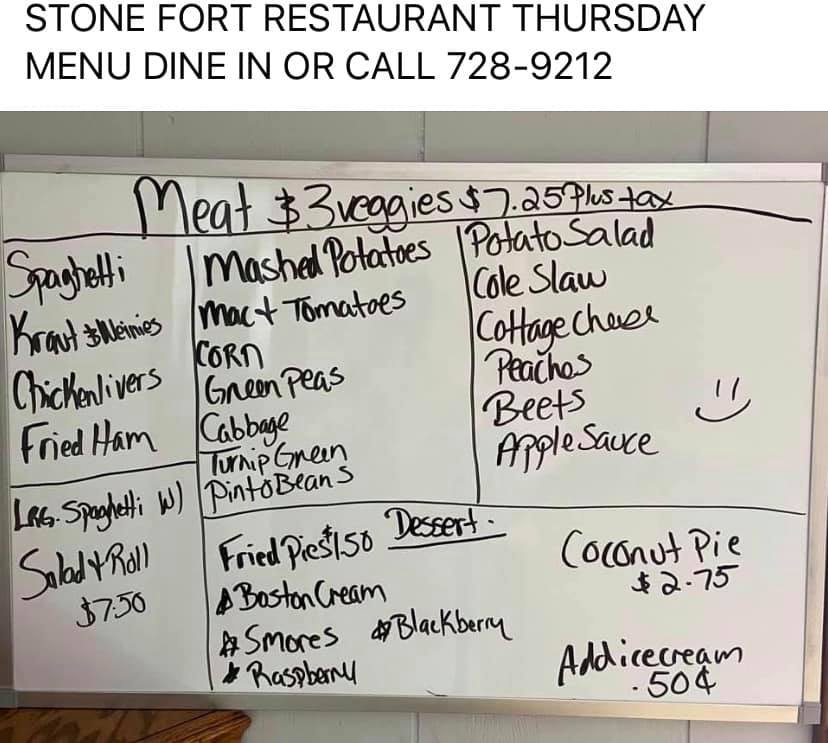 STONE FORT RESTAURANT THURSDAY
MENU DINE IN OR CALL 728-9212
Meat & 3 veggies $7.25 Plus tax
Spaghetti
Kraut & Weinies
Chicken livers
Fried Ham
Mashed Potatoes
Mac & Tomatoes
CORN
Green Peas
Cabbage
Turnip Green
Pinto Beans
Potato Salad
Cole Slaw
Cottage Cheese
Peaches
Beets
Apple Sauce
LRG. Spaghetti W)
Salad & Roll
$7.50
Dessert
Fried Pies $1.50
Boston Cream
Smores
Blackberry
Raspberry
Coconut Pie
$2.75
Add icecream
.50¢